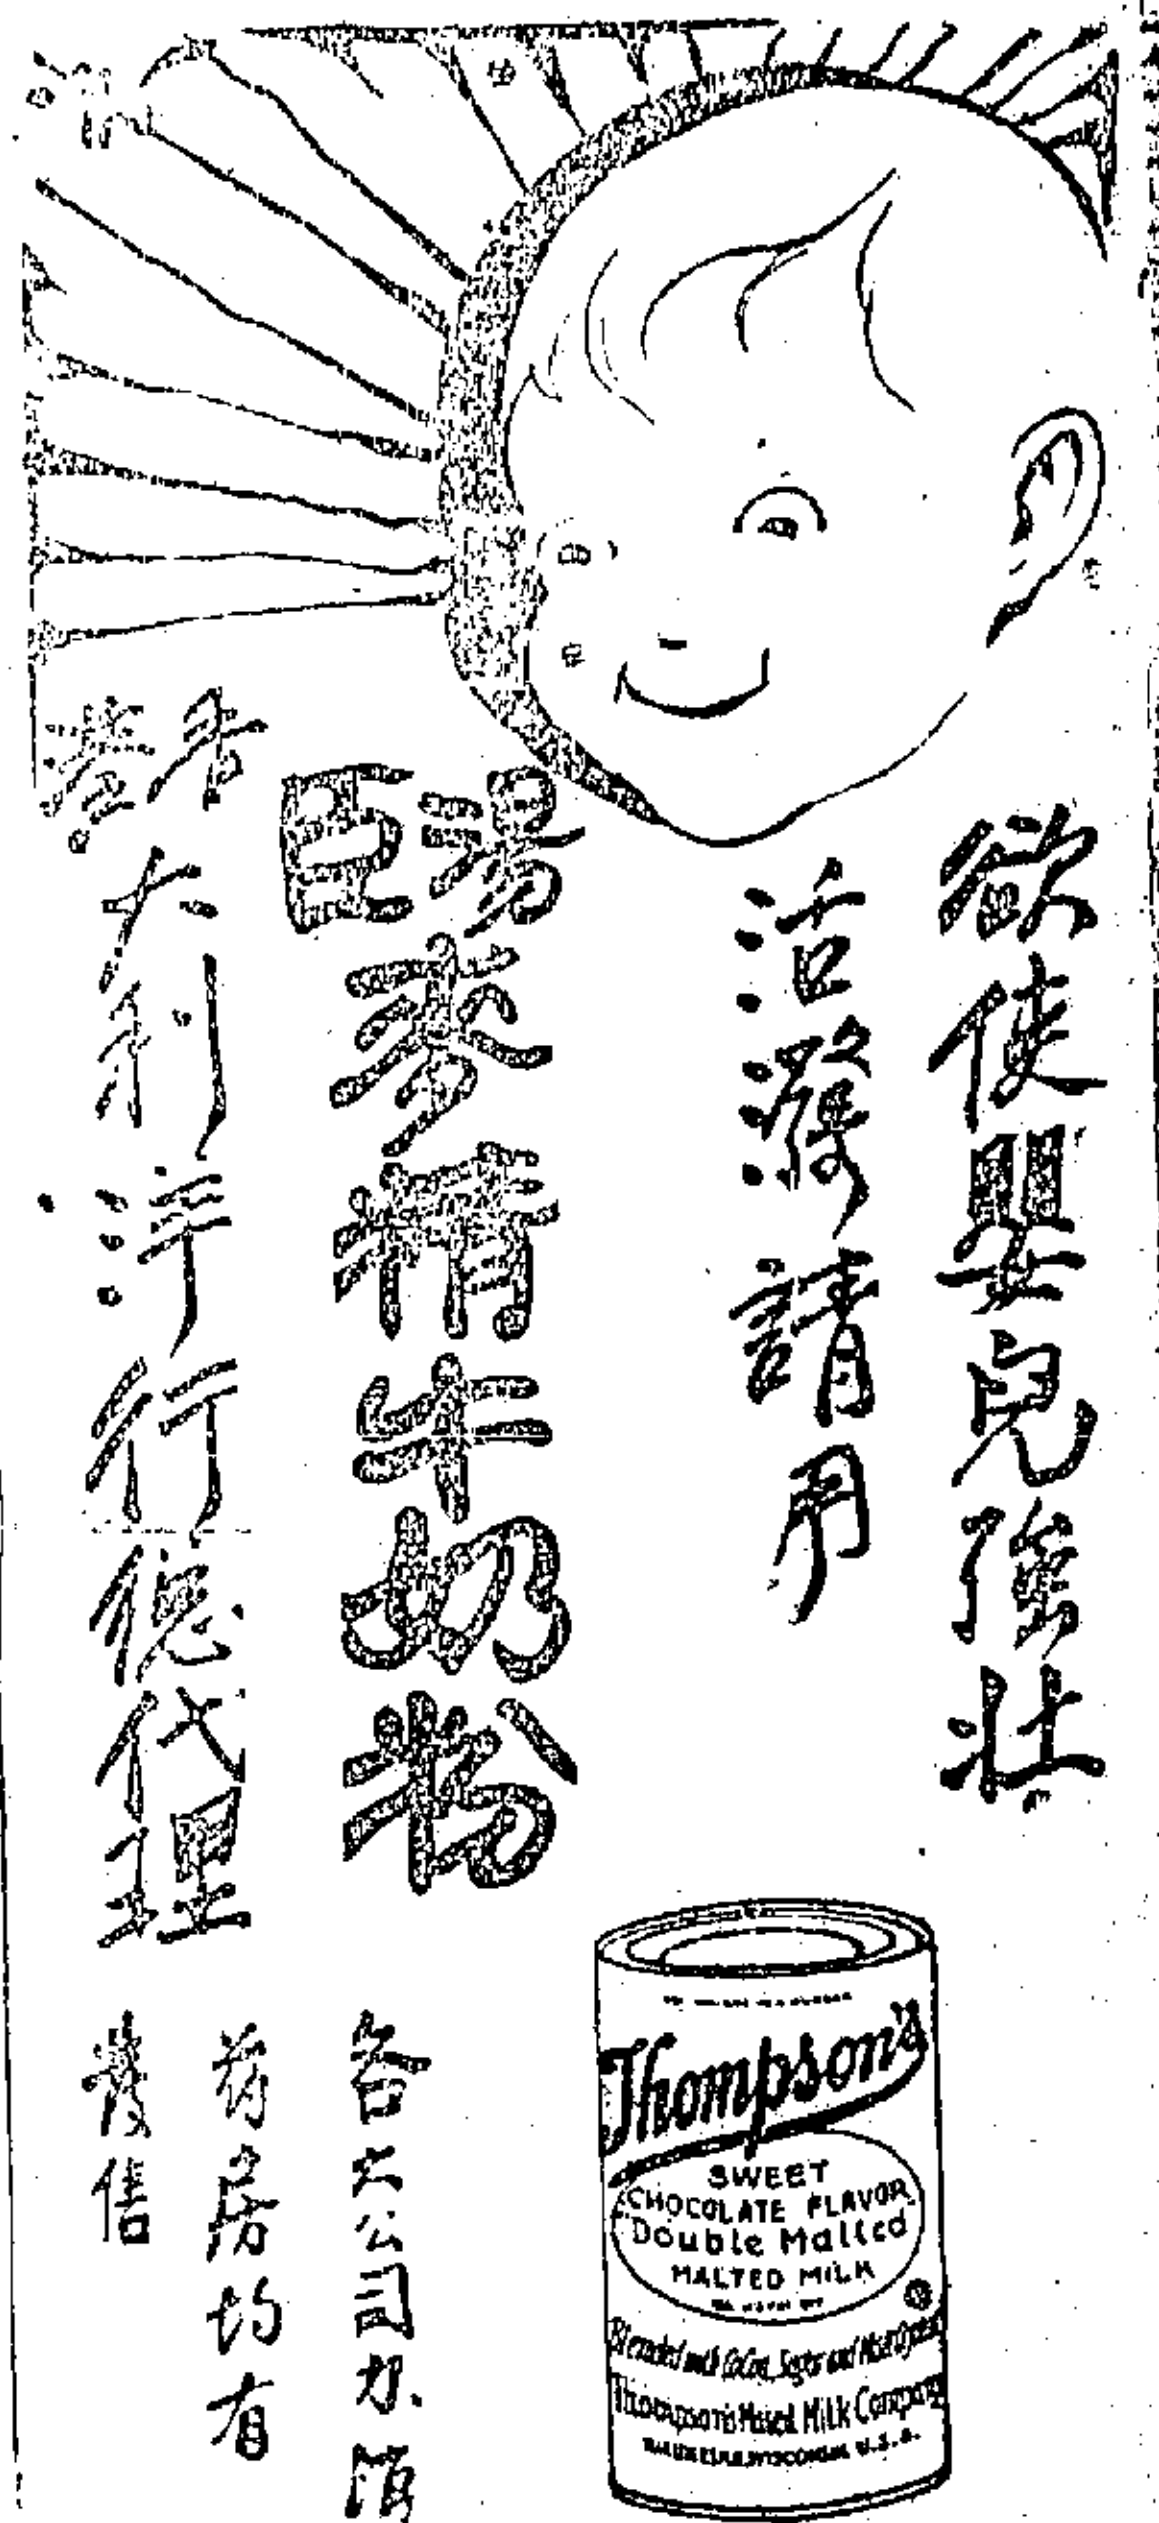 欲使嬰兒強壯
活潑請用
湯臣
麥精牛奶粉
香港
大利洋行總代理
各大公司辦館
药房均有
發售
Thompson's
SWEET
CHOCOLATE FLAVOR
Double Malted
MALTED MILK
Blended with Cocoa, Sugar and
Thompson's Malted Milk Company
WAUKESHA, WISCONSIN U.S.A.